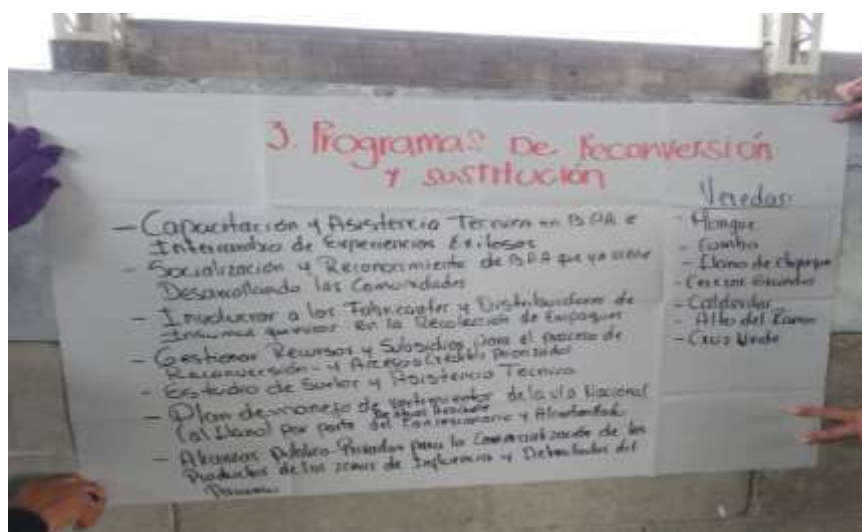 3. Programas De Reconversión
y sustitución
- Capacitación y Asistencia Tecnica en BPA e
Intercambio de Experiencias Exitosas
- Socialización y Reconocimiento de BPA que ya viene
Desarrollando las Comunidades
- Involucrar a los Fabricantes y Distribuidores de
Insumos en la Recolección de Empaques
- Gestionar Recursos y Subsidios para el proceso de
Reconversión - y Acceso Credito Priorizados
- Estudio de Suelos y Asistencia Tecnica
- Plan de manejo de vertimientos de la vía Nacional
(al llano) por parte del Concesionario y
- Alianzas Publico Privadas para la Comercialización de los
Productos de las zonas de Influencia y Delimitadas del
Paramo
Veredas
- Mongue
- Llano de Chipaque
- Alto del Ramo
- Cruz Verde